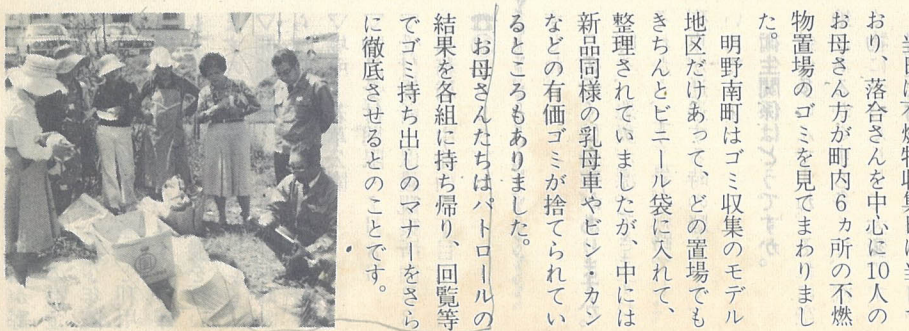 当日は不燃物収集日に当して
おり、落合さんを中心に10人の
お母さん方が町内6ヵ所の不燃
物置場のゴミを見てまわりまし
た。
明野南町はゴミ収集のモデル
地区だけあって、どの置場でも
きちんとビニール袋に入れて、
整理されていましたが、中には
新品同様の乳母車やビン・カン
などの有価ゴミが捨てられてい
るところもありました。
お母さんたちはパトロールの
結果を各組に持ち帰り、回覧等
でゴミ持ち出しのマナーをさら
に徹底させるとのことです。